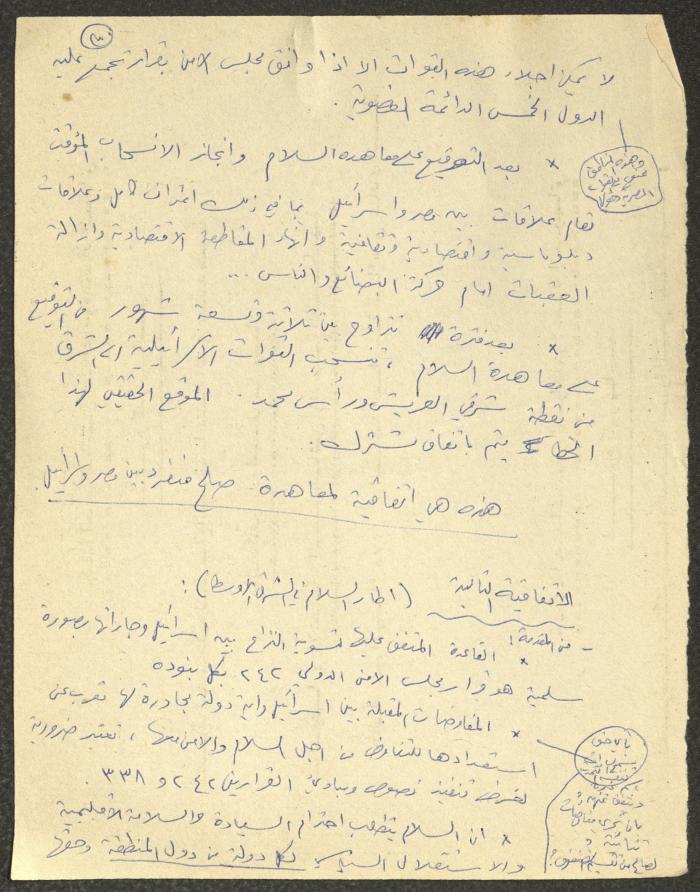 ٣
لا يمكن اجلاء هذه القوات الا اذا وافق مجلس الامن بقرار تجمع عليه
الدول الخمس الدائمة العضوية .
× بعد التوقيع على معاهدة السلام وانجاز الانسحاب المؤقت
تقام علاقات بين مصر واسرائيل بما في ذلك اعتراف كامل وعلاقات
دبلوماسية واقتصادية وثقافية وانهاء المقاطعة الاقتصادية وازالة
العقبات امام حركة البضائع والناس ...
× بعد فترة تتراوح بين ثلاثة وتسعة شهور من التوقيع
على معاهدة السلام ، تنسحب القوات الاسرائيلية الى الشرق
من نقطة شرقي العريش ورأس محمد . الموقع الحقيقي لهذا
الخط يتم باتفاق مشترك .
هذه هي اتفاقية لمعاهدة صلح منفرد بين مصر واسرائيل
الاتفاقية الثانية (اطار السلام في الشرق الاوسط) :
- من المقدمة :
× القاعدة المتفق عليها لتسوية النزاع بين اسرائيل وجاراتها بصورة
سلمية هو قرار مجلس الامن الدولي ٢٤٢ بكل بنوده
× المفاوضات المقبلة بين اسرائيل واية دولة مجاورة لها تعرب عن
استعدادها للتفاوض من اجل السلام والامن معها ، تعتبر ضرورية
لغرض تنفيذ نصوص ومبادئ القرارين ٢٤٢ و ٣٣٨ .
× ان السلام يتطلب احترام السيادة والسلامة الاقليمية
والاستقلال السياسي لكل دولة من دول المنطقة وحقها